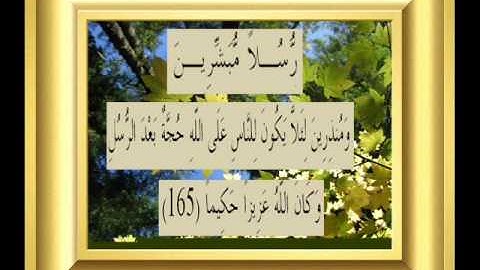 رُّسُـــلاً مُّبَشِّرِيـــنَ
وَمُنذِرِينَ لِئَلاَّ يَكُونَ لِلنَّاسِ عَلَى اللّهِ حُجَّةٌ بَعْدَ الرُّسُلِ
وَكَانَ اللّهُ عَزِيزًا حَكِيماً (165)